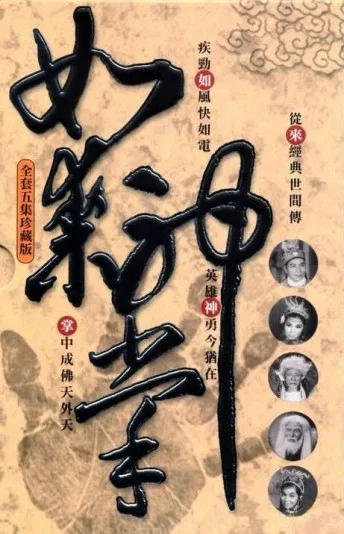 如來神掌
疾勁如風快如電
從來經典世間傳
英雄神勇今猶在
掌中成佛天外天
全套五集珍藏版